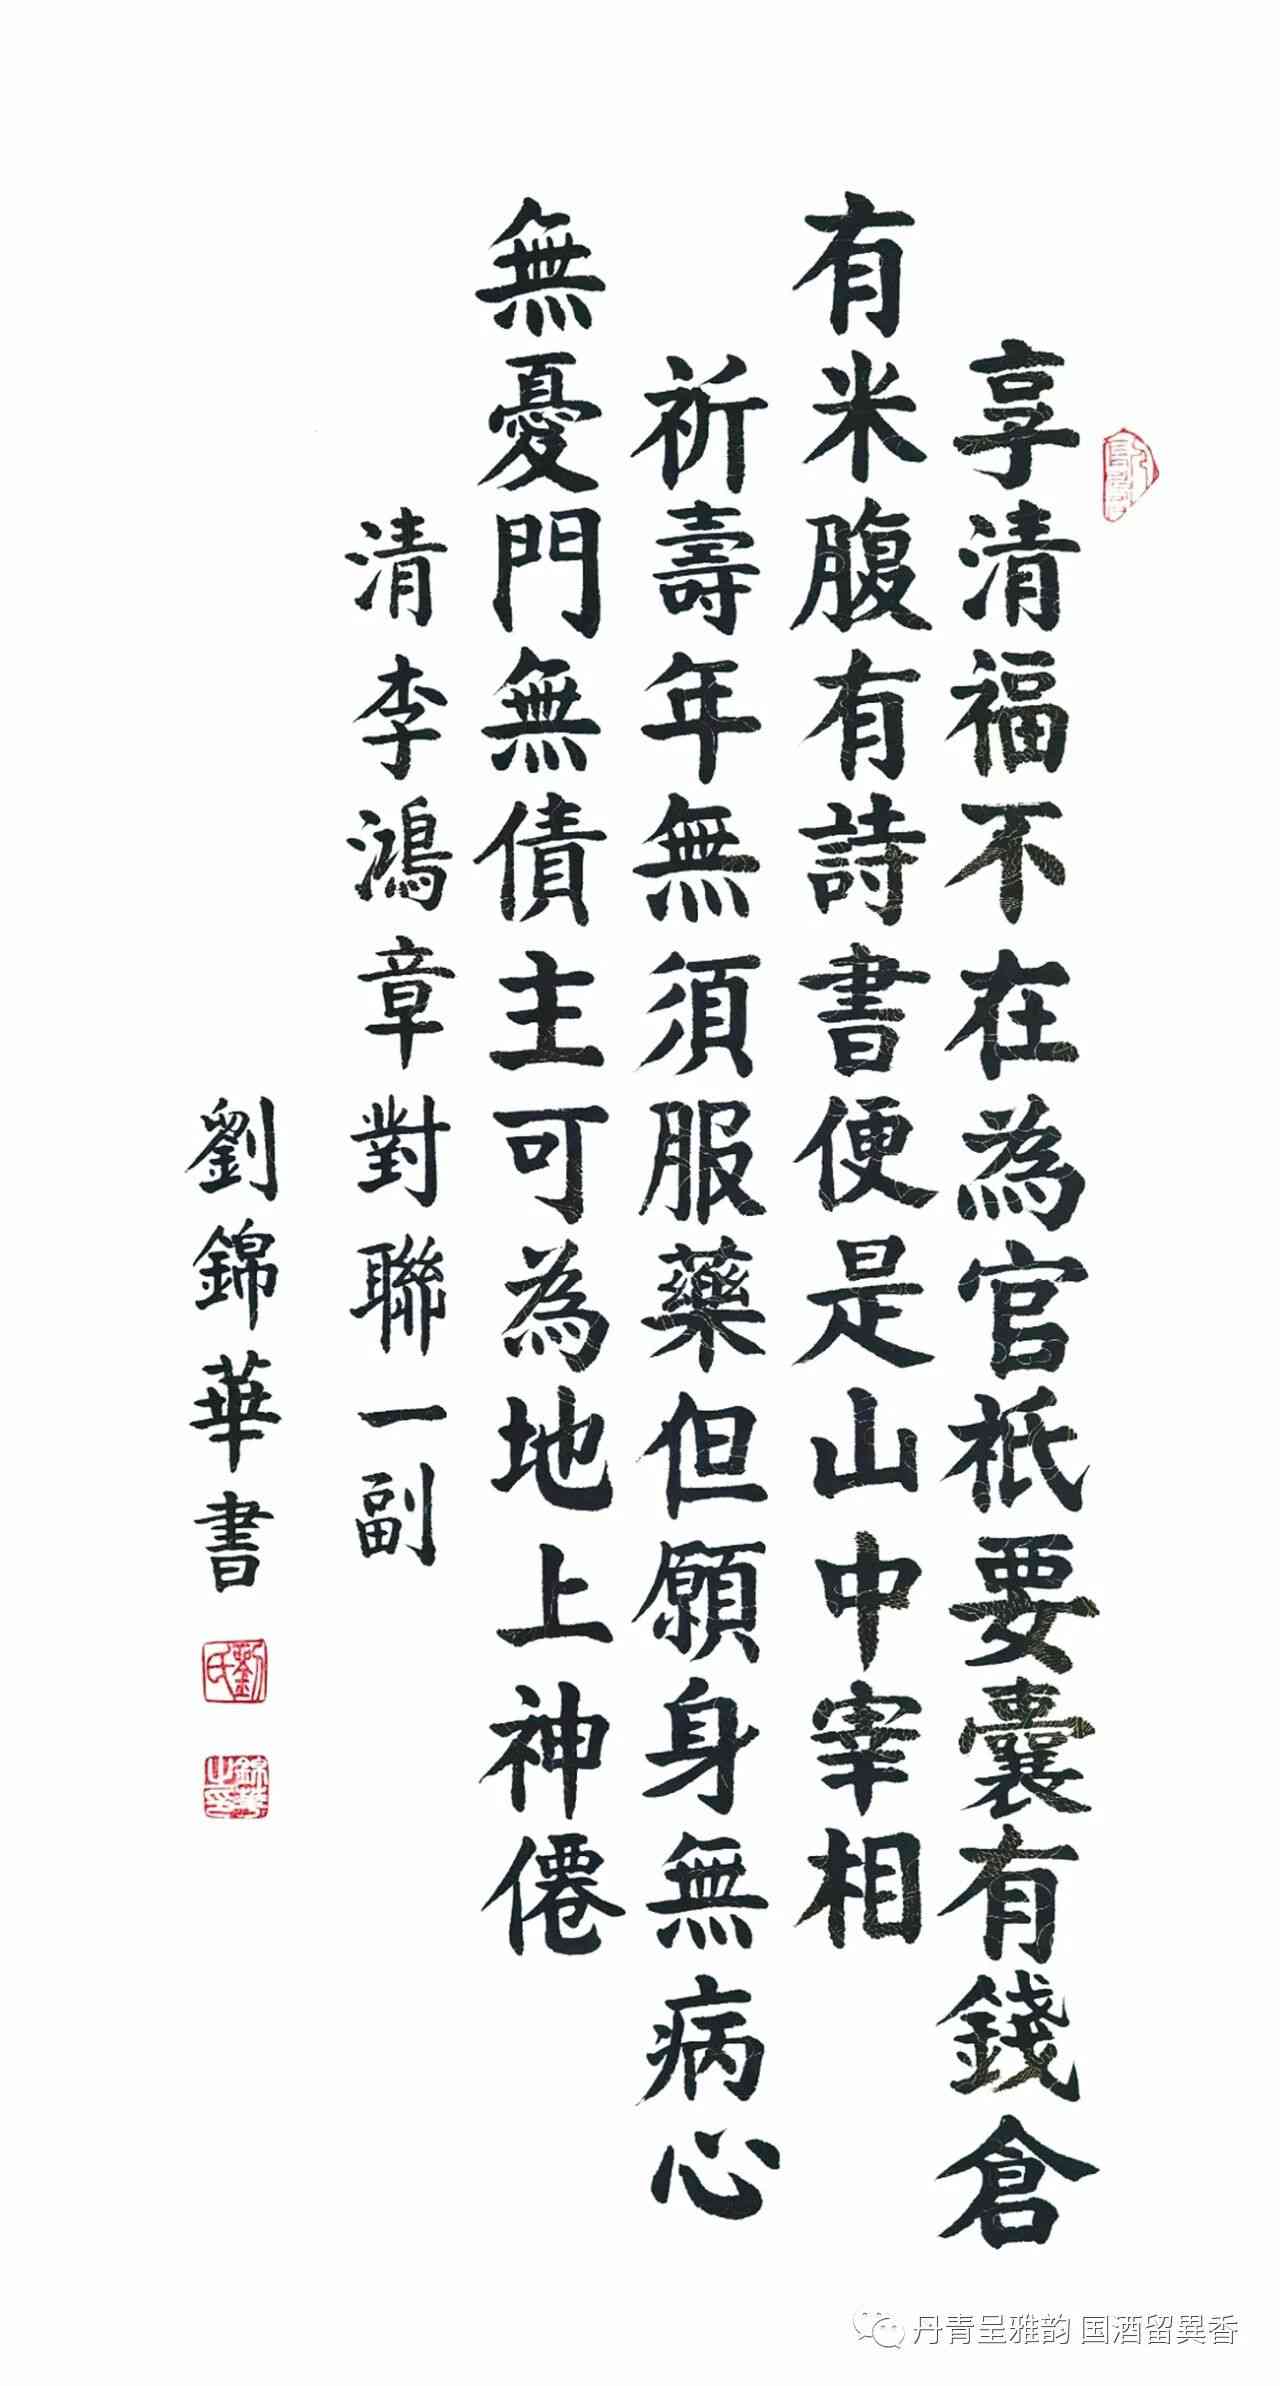 享清福不在為官祇要囊有錢倉
有米腹有詩書便是山中宰相
祈壽年無須服藥但願身無病心
無憂門無債主可為地上神僊
清李鴻章對聯一副
劉錦華書
劉氏
錦華之印
丹青呈雅韵 国酒留異香